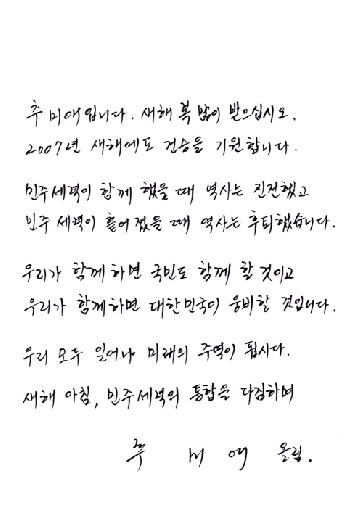 추미애입니다. 새해 복 많이 받으십시오.
2007년 새해에도 건승을 기원합니다.
민주세력이 함께 했을 때 역사는 진전했고
민주세력이 흩어졌을 때 역사는 후퇴했습니다.
우리가 함께하면 국민도 함께 할 것이고
우리가 함께하면 대한민국이 웅비할 것입니다.
우리 모두 일어나 미래의 주역이 됩시다.
새해 아침, 민주세력의 통합을 다짐하며
추 미 애 올림.